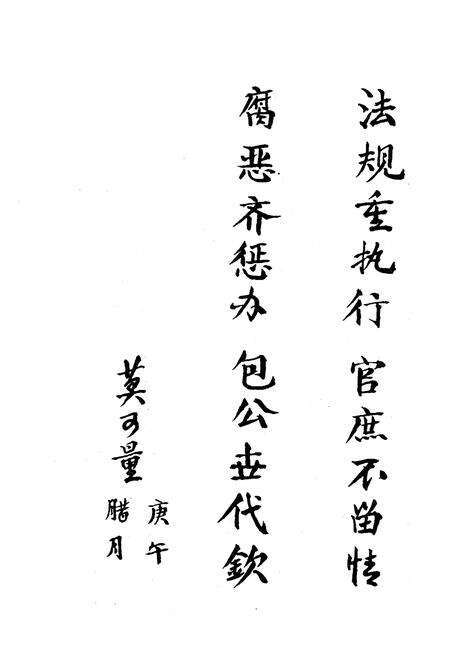 法规重执行 官庶不留情
腐恶齐惩办 包公世代钦
莫可量
庚午
腊月